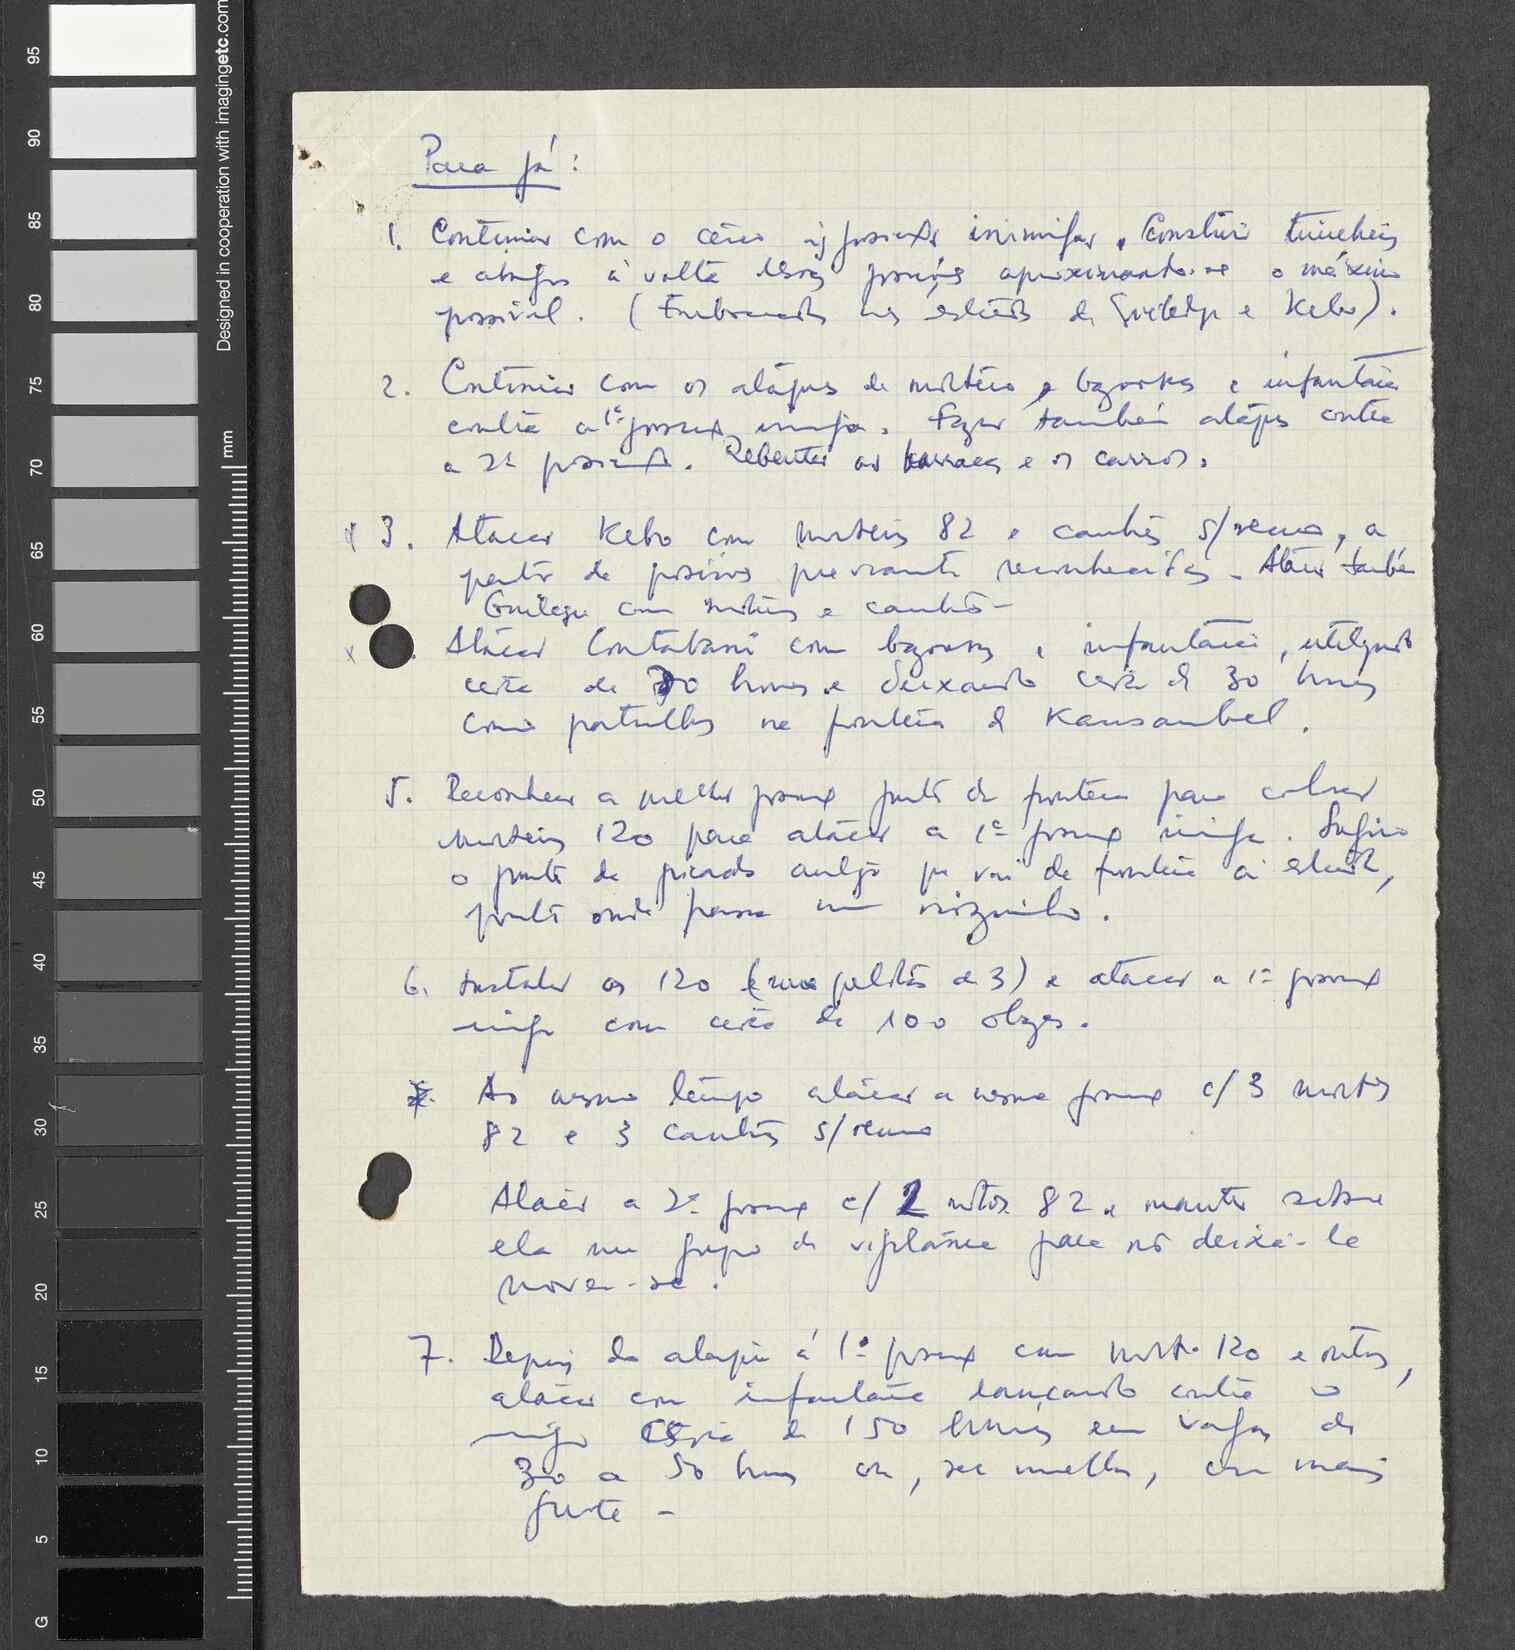 Para já:
1. Continuar com o cerco às posições inimigas. Construir trincheiras
e abrigos à volta dessas posições aproximando-se o máximo
possível. (Emboscadas nas estradas de Guiledje e Kebo).
2. Continuar com os ataques de morteiro, bazookas e infantaria
contra a 1ª posição inimiga. Fazer também ataques contra
a 2ª posição. Rebentar as barracas e os carros.
x 3. Atacar Kebo com morteiros 82 e canhões s/recuo, a
partir de posições previamente reconhecidas. Atacar também
Guilege com morteiros e canhões -
x Atacar Contabani com bazookas e infantaria, utilizando
cerca de 70 homens e deixando cerca de 30 homens
como patrulhas na fronteira de Kansambel.
5. Reconhecer a melhor posição junto da fronteira para colocar
morteiros 120 para atacar a 1ª posição inimiga. Sugiro
o ponto da picada antiga que vai da fronteira à estrada,
ponto onde passa um riozinho.
6. Instalar os 120 (uma de 3) e atacar a 1ª posição
inimiga com cerca de 100 obuzes.
Ao mesmo tempo atacar a mesma posição c/ 3 morteiros
82 e 3 canhões s/recuo
Atacar a 2ª posição c/ 2 mtos. 82 e manter sobre
ela um grupo de vigilância para não deixá-la
mover-se.
7. Depois do ataque à 1ª posição com morto. 120 e outros,
atacar com infantaria lançando contra o
inimigo cerca de 150 homens em vagas de
30 a 50 homens ou, se melhor, com mais
gente -